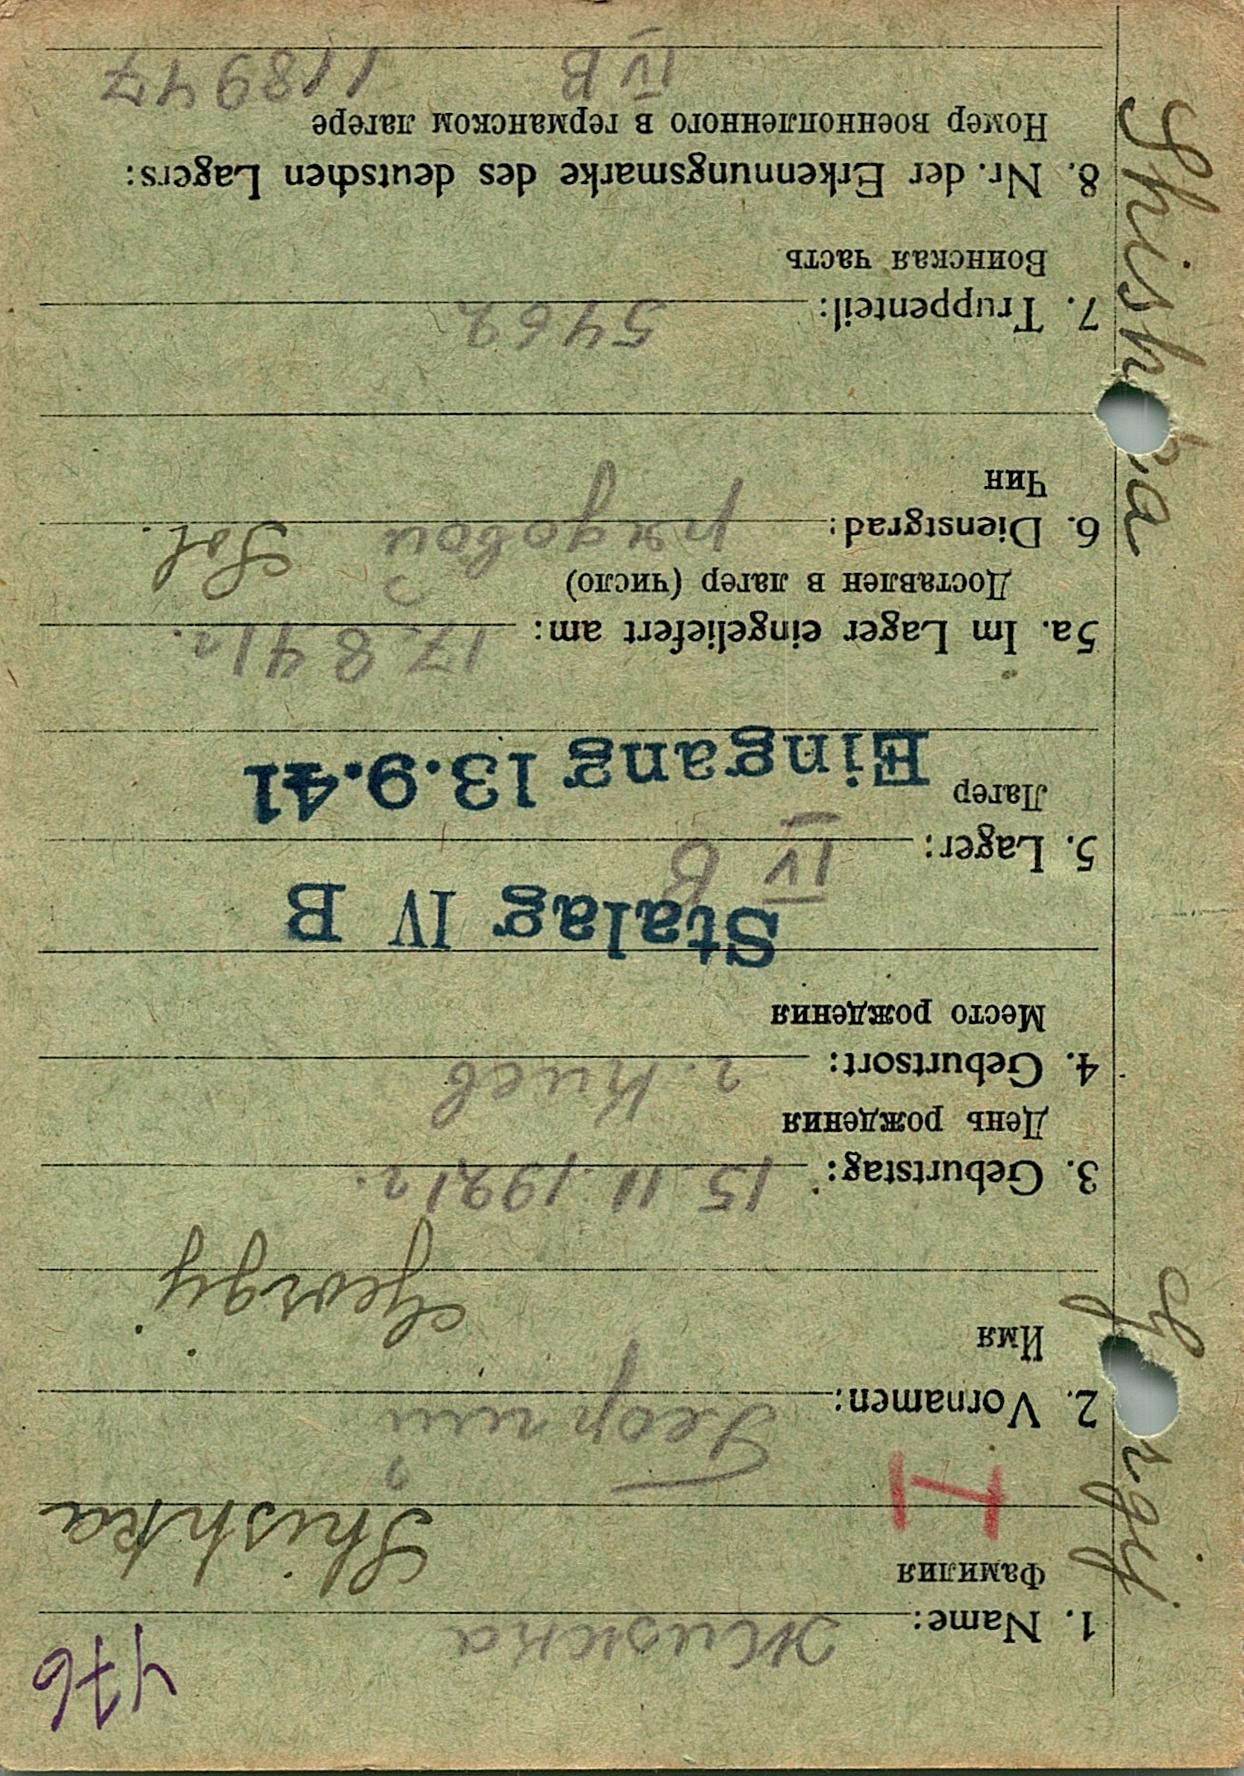 476
1. Name: Жижка
Фамилия
Shishka
2. Vornamen: Георгий
Имя
Georgij
3. Geburtstag: 15.11.1921г.
День рождения
4. Geburtsort: г. Киев
Место рождения
Stalag IV B
5. Lager: IV B
Лагер
Eingang 13.9.41
5a. Im Lager eingeliefert am: 17.8.41г.
Доставлен в лагер (число)
6. Dienstgrad: рядовой Sol.
Чин
7. Truppenteil: 546
Воинская часть
8. Nr. der Erkennungsmarke des deutschen Lagers:
Номер военнопленного в германском лагере
IV B 118947
Shishka